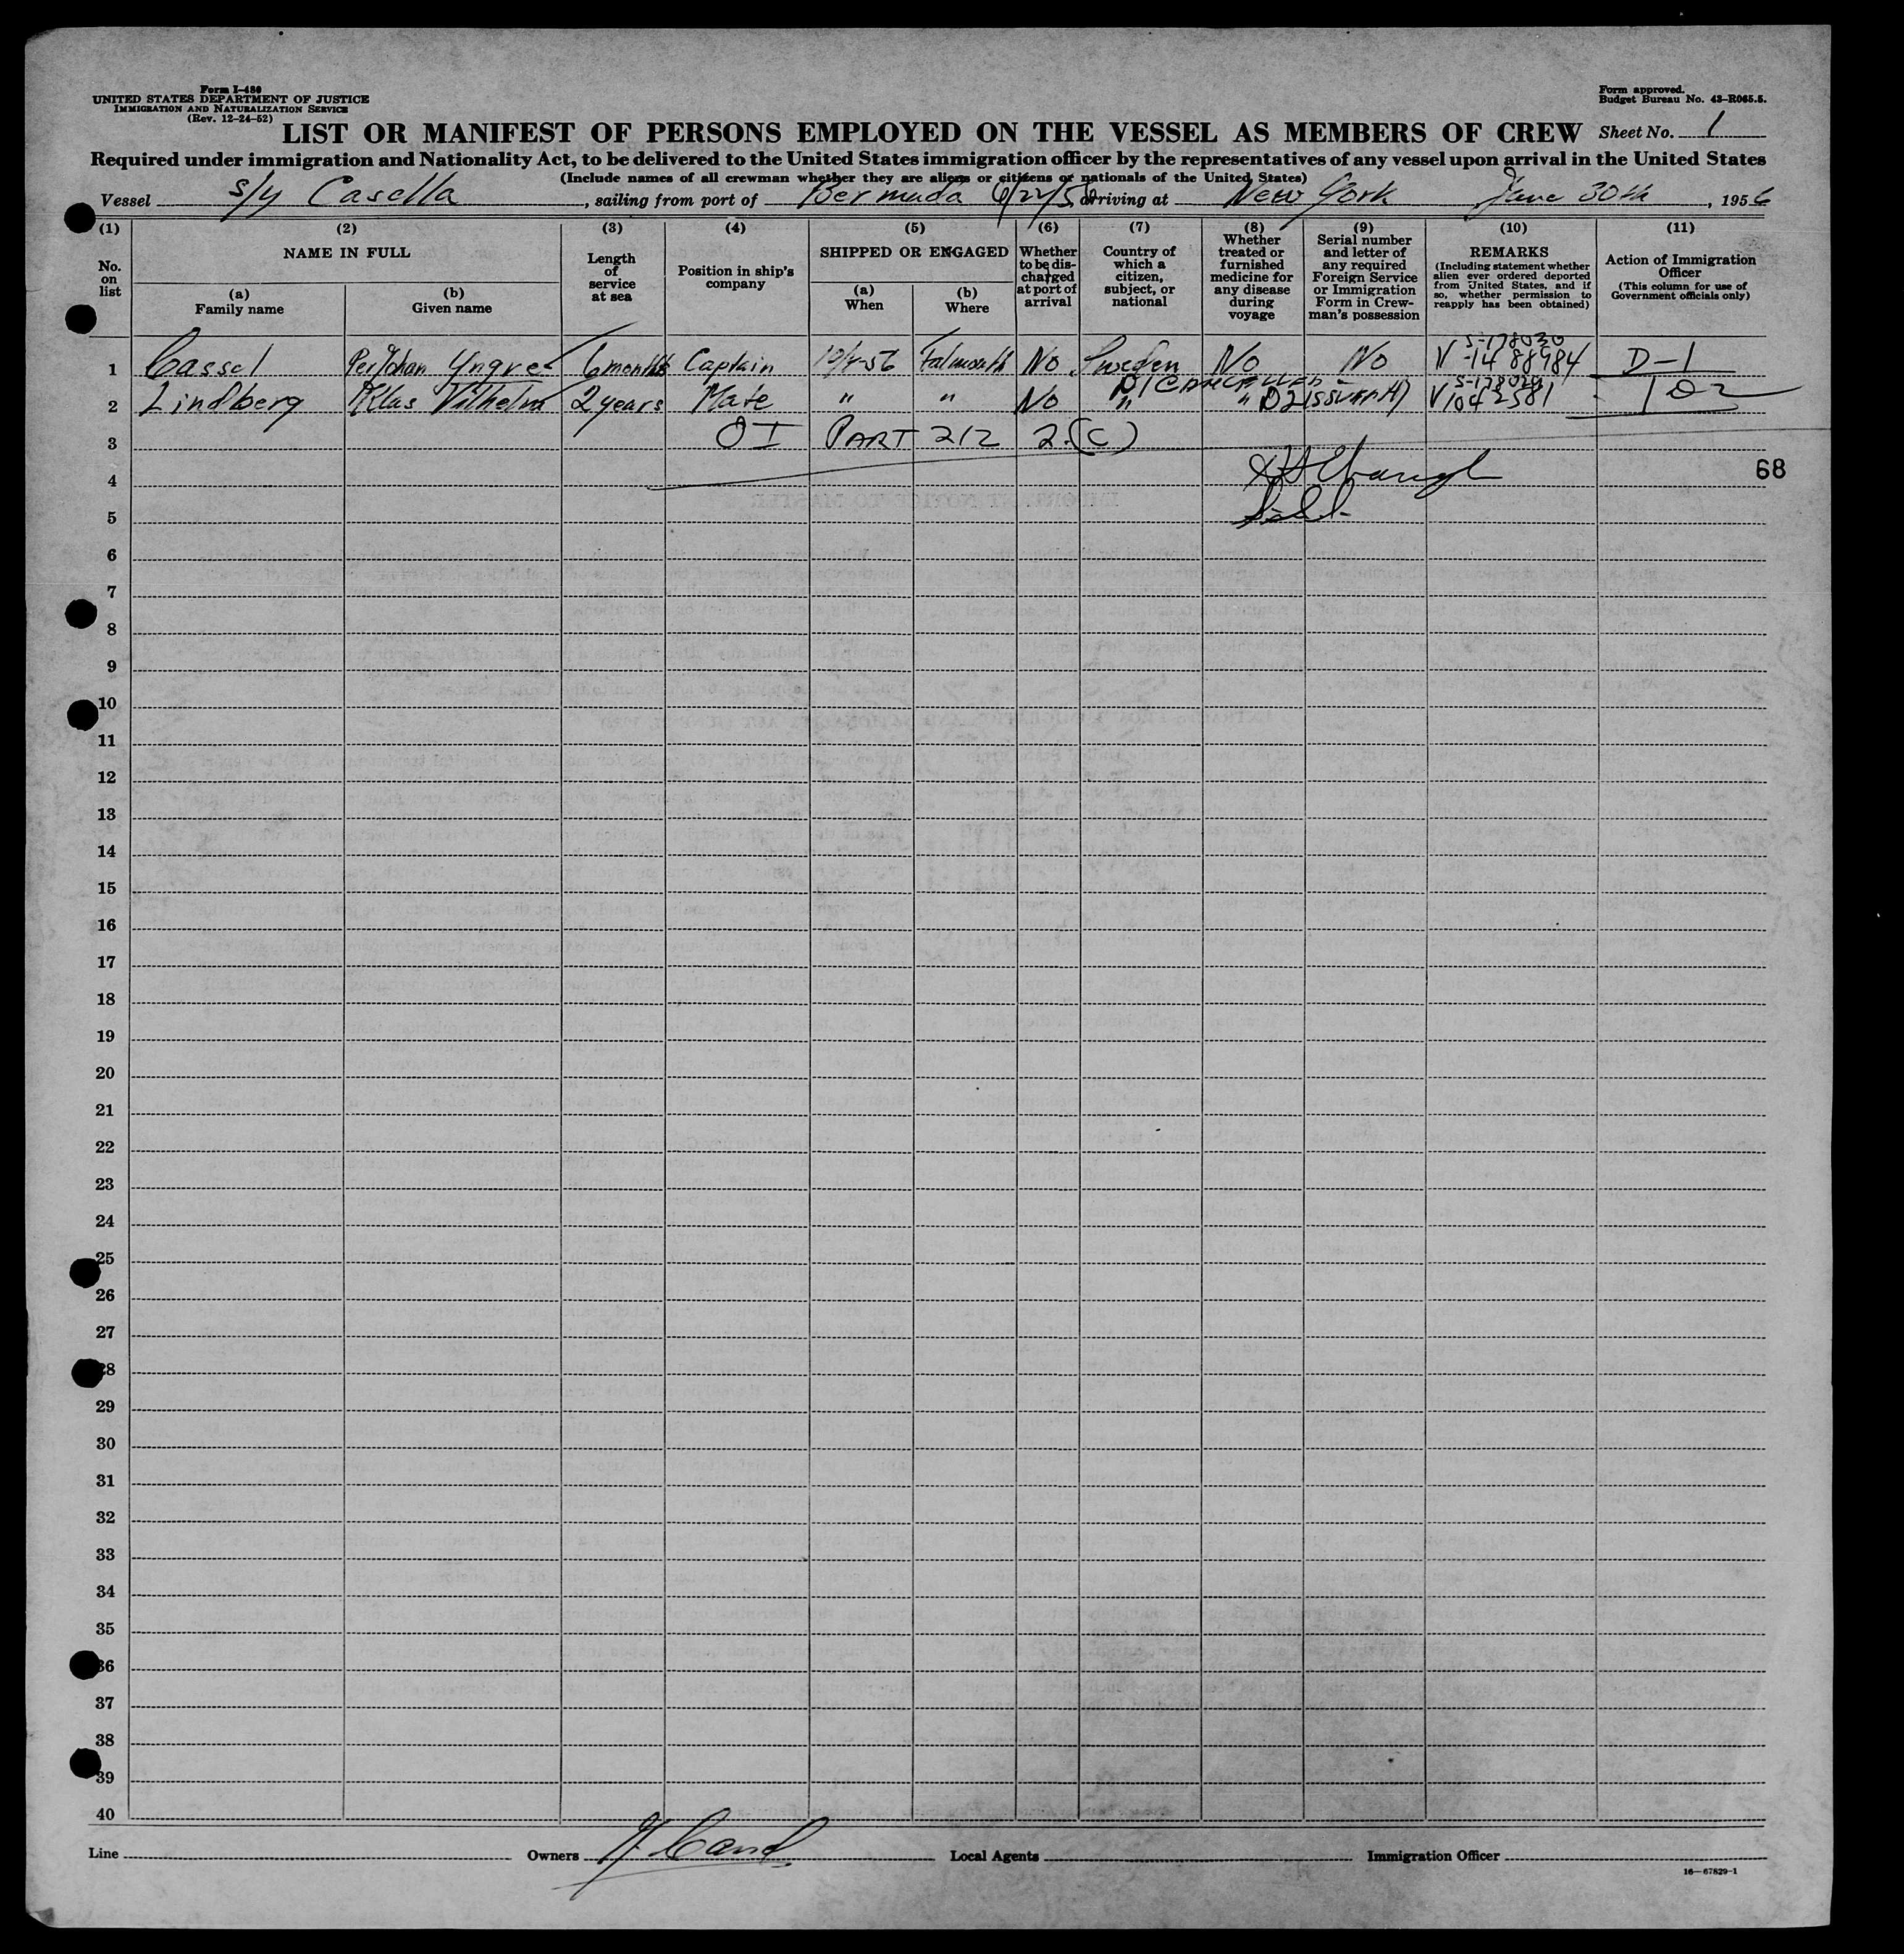 Form I-480
UNITED STATES DEPARTMENT OF JUSTICE
IMMIGRATION AND NATURALIZATION SERVICE
(Rev. 12-24-52)
Form approved.
Budget Bureau No. 43-R065.5.
LIST OR MANIFEST OF PERSONS EMPLOYED ON THE VESSEL AS MEMBERS OF CREW
Sheet No. 1
Required under immigration and Nationality Act, to be delivered to the United States immigration officer by the representatives of any vessel upon arrival in the United States
(Include names of all crewman whether they are aliens or citizens or nationals of the United States)
Vessel S/y Casella, sailing from port of Bermuda 6/22/56 arriving at New York June 30th, 1956
(1) (2) (3) (4) (5) (6) (7) (8) (9) (10) (11)
No. on list
NAME IN FULL
(a) Family name
(b) Given name
Length of service at sea
Position in ship's company
SHIPPED OR ENGAGED
(a) When
(b) Where
Whether to be discharged at port of arrival
Country of which a citizen, subject, or national
Whether treated or furnished medicine for any disease during voyage
Serial number and letter of any required Foreign Service or Immigration Form in Crewman's possession
REMARKS
(Including statement whether alien ever ordered deported from United States, and if so, whether permission to reapply has been obtained)
Action of Immigration Officer
(This column for use of Government officials only)
S-178030
1 Cassel Per Johan Yngve 6 months Captain 10/4-56 Falmouth No Sweden No No V-1488984 D-1
D1 CANCELLED -
2 Lindberg Klas Vilhelm 2 years Mate " " No " " D2 ISSUED V1042581
3 OI PART 212 2.(C)
4
68
5
6
7
8
9
10
11
12
13
14
15
16
17
18
19
20
21
22
23
24
25
26
27
28
29
30
31
32
33
34
35
36
37
38
39
40
Line
Owners
Local Agents
Immigration Officer
16-67829-1